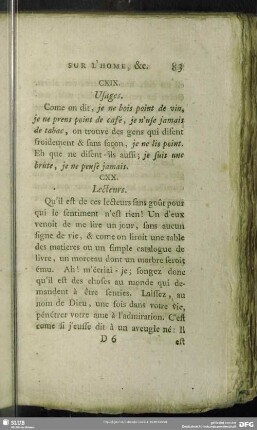 SUR L'HOME, &c. 83
CXIX.
Usages.
Come on dit, je ne bois point de vin,
je ne prens point de café, je n'use jamais
de tabac, on trouve des gens qui disent
froidement & sans façon, je ne lis point.
Eh que ne disent-ils aussi; je suis une
brute, je ne pense jamais.
CXX.
Lecteurs.
Qu'il est de ces lecteurs sans goût pour
qui le sentiment n'est rien! Un d'eux
venoit de me lire un jour, sans aucun
signe de vie, & come on liroit une table
des matieres ou un simple catalogue de
livre, un morceau dont un marbre seroit
ému. Ah! m'écriai-je, songez donc
qu'il est des choses au monde qui de-
mandent à être senties. Laissez, au
nom de Dieu, une fois dans votre vie,
pénétrer votre ame à l'admiration. C'est
come si j'eusse dit à un aveugle né: Il
D 6 est
SLUB
DFG